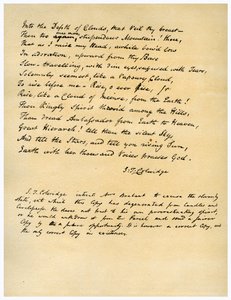 Into the Depth of Clouds, that veil thy breast—
Thou too again, stupendous Mountain! thou,
That as I raise my Head, awhile bow'd low
In Adoration, upward from thy Base
Slow-travelling with dim eyes suffused with Tears,
Solemnly seemest, like a vapoury Cloud,
To rise before me— Rise, O ever rise,
Rise, like a Cloud of Incense, from the Earth!
Thou kingly Spirit throned among the Hills,
Thou dread Ambassador from Earth to Heaven,
Great Hierarch! tell thou the silent Sky,
And tell the Stars, and tell yon rising Sun,
Earth with her thousand Voices praises God.
S. T. Coleridge
S. T. Coleridge intreats Mrs to excuse the slovenly
state, into which this Copy has degenerated from
Carelessness. He dares not trust to his own procrastinating
or he would withdraw it from the Parcel and send a fairer
Copy by a future opportunity. It is however a correct Copy, and
the only correct Copy in existence.